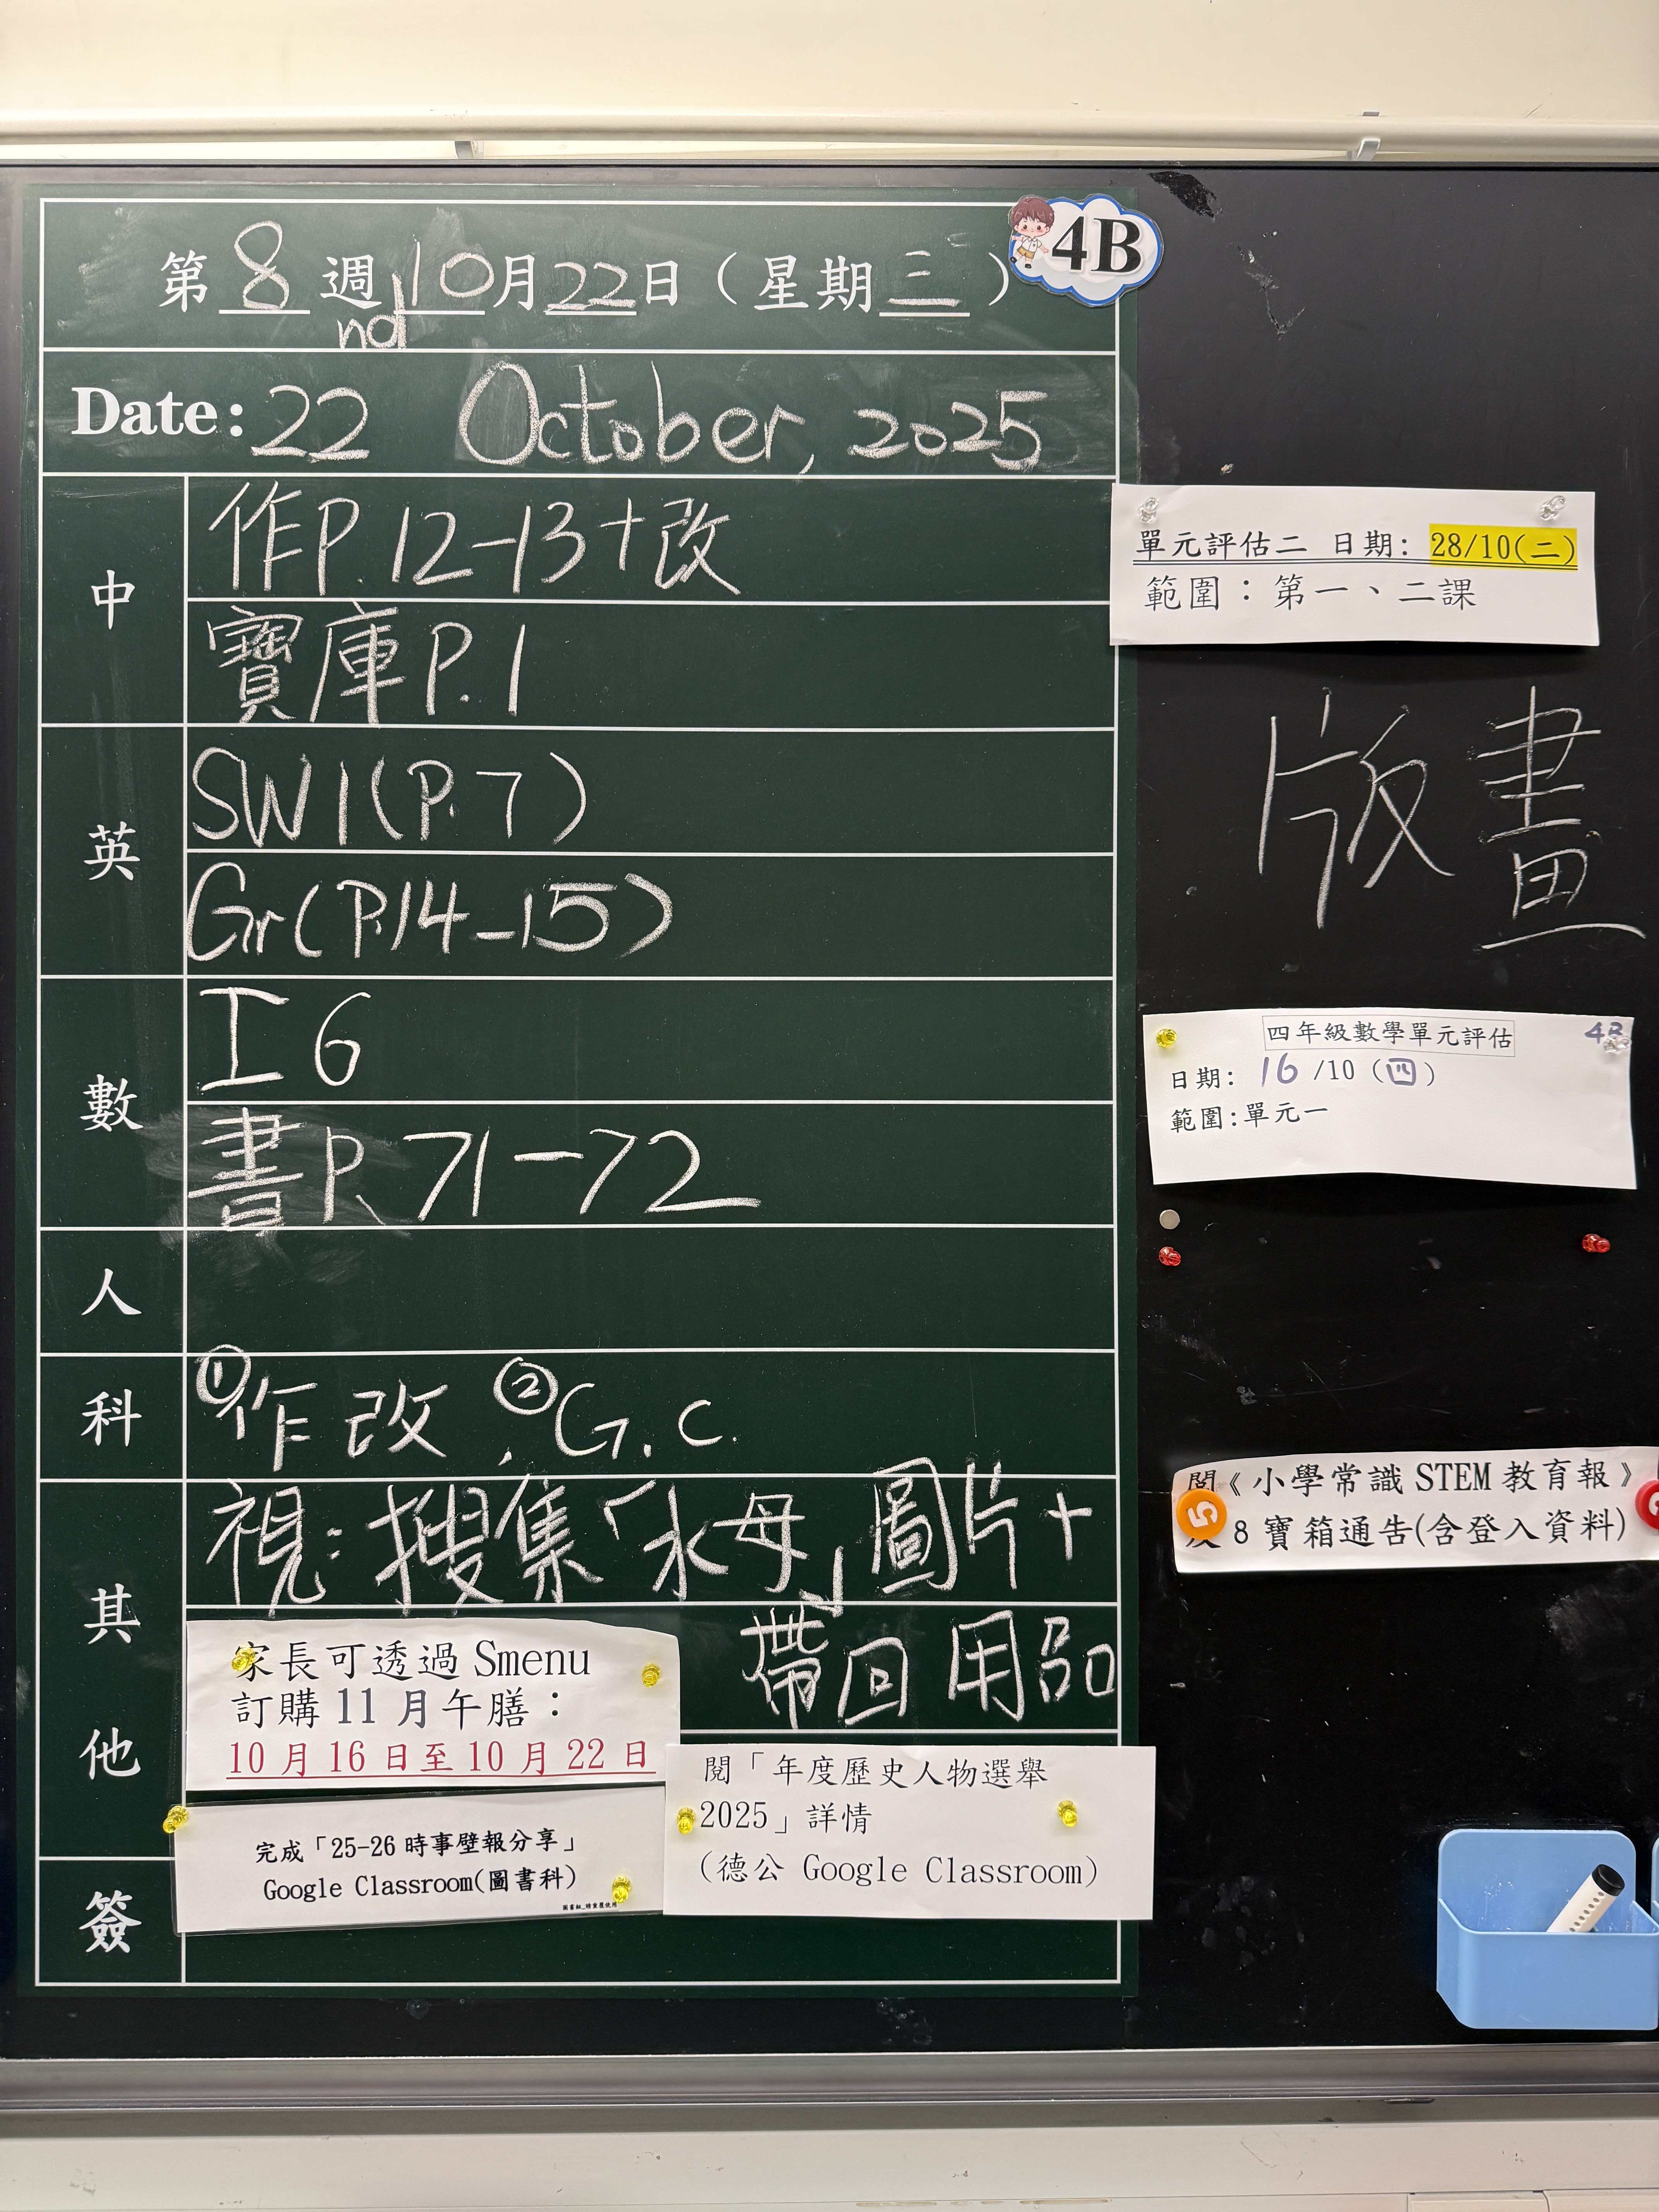 第8週10月22日（星期三）
4B
nd
Date: 22 October, 2025
中
作P.12-13+改
寶庫P.1
英
SW1(P.7)
Gr(P.14-15)
數
工6
書P.71-72
人
科
①作改,②G.C.
其他
視:搜集「水母」圖片+
帶回用品
家長可透過 Smenu
訂購 11 月午膳：
10 月 16 日至 10 月 22 日
完成「25-26 時事壁報分享」
Google Classroom(圖書科)
閱「年度歷史人物選舉
2025」詳情
(德公 Google Classroom)
簽
單元評估二 日期: 28/10(二)
範圍：第一、二課
版畫
四年級數學單元評估
4B
日期: 16/10 (四)
範圍:單元一
閱《小學常識 STEM 教育報》
8 寶箱通告(含登入資料)
5